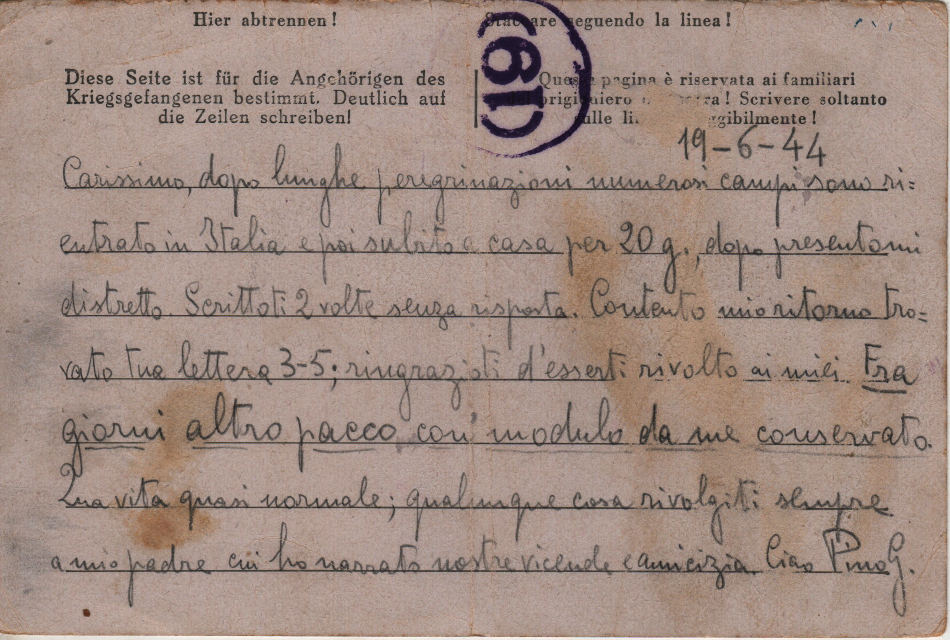 Hier abtrennen! Staccare seguendo la linea!
Diese Seite ist für die Angehörigen des
Kriegsgefangenen bestimmt. Deutlich auf
die Zeilen schreiben!
Questa pagina è riservata ai familiari
! Scrivere soltanto
(19)
19-6-44
Carissimo, dopo lunghe peregrinazioni numerosi campi sono ri=
entrato in Italia e poi subito a casa per 20 g., dopo presentomi
distretto. Scrittoti 2 volte senza risposta. Contento mio ritorno tro=
vato tua lettera 3-5; ringrazioti d'esserti rivolto ai miei. Fra
giorni altro pacco con modulo da me conservato.
Qua vita quasi normale; qualunque cosa rivolgiti sempre
a mio padre cui ho narrato nostre vicende e amicizia. Ciao Pino G.